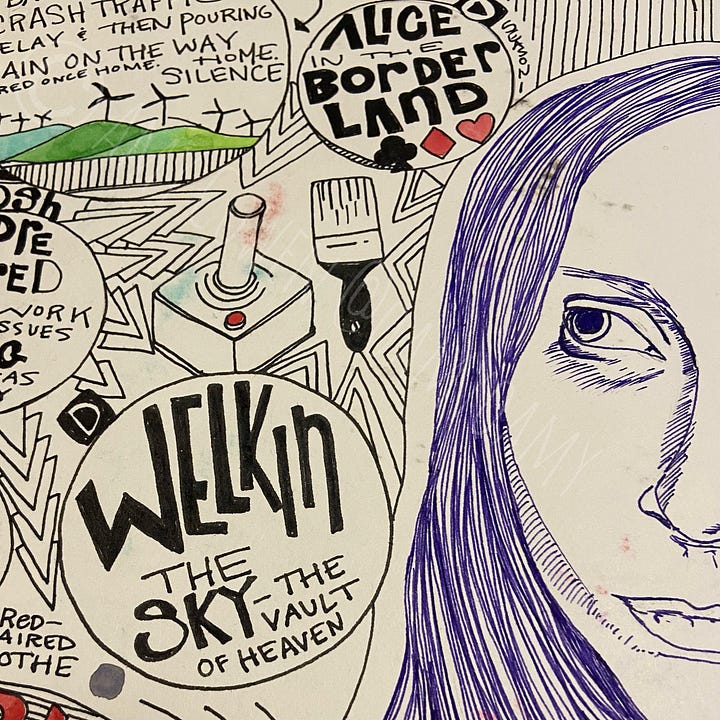 CRASH TRAFFIC
ELAY & THEN POURING
AIN ON THE WAY HOME.
RED ONCE HOME. SILENCE
D
ALICE
IN THE
BORDER
LAND
OSH
ORE
RED
WORK
ISSUES
AS
D
WELKIN
THE
SKY- THE
VAULT
OF HEAVEN
RED-
AIRED
OTHE